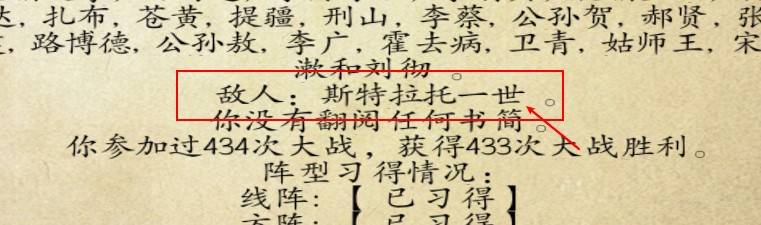 扎布，苍黄，提疆，刑山，李蔡，公孙贺，郝贤，
路博德，公孙敖，李广，霍去病，卫青，姑师王，宋
漱和刘彻 。
敌人：斯特拉托一世 。
你没有翻阅任何书简。
你参加过434次大战，获得433次大战胜利。
阵型习得情况：
线阵:【 已习得】
方阵:【 已习得】